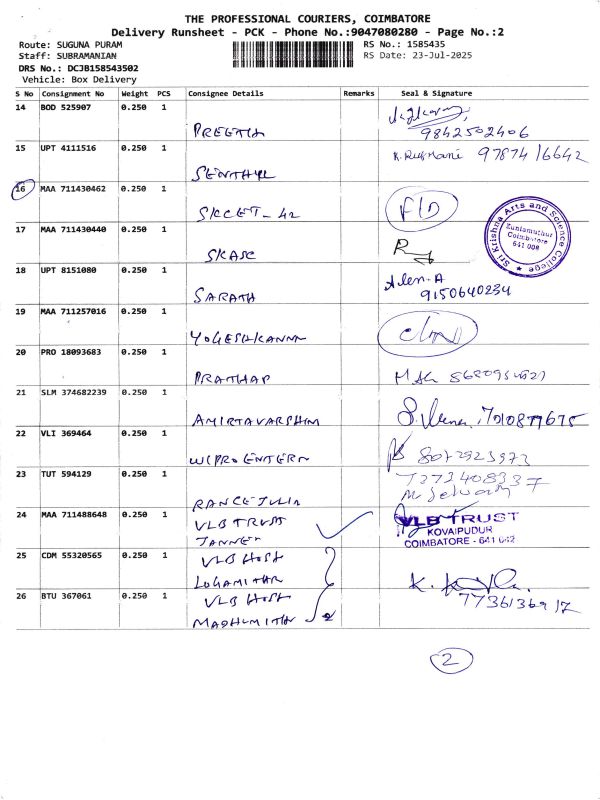 THE PROFESSIONAL COURIERS, COIMBATORE
Delivery Runsheet - PCK - Phone No.:9047080280 - Page No.:2
Route: SUGUNA PURAM
RS No.: 1585435
Staff: SUBRAMANIAN
RS Date: 23-Jul-2025
DRS No.: DCJB158543502
Vehicle: Box Delivery
S No Consignment No Weight PCS Consignee Details Remarks Seal & Signature
14 BOD 525907 0.250 1
PREETIA
9842502406
15 UPT 4111516 0.250 1
K. Rukmani 97874 16642
SENTHYL
16 MAA 711430462 0.250 1
SKCET-42
17 MAA 711430440 0.250 1
SKASC
Sri Krishna Arts and Science College
Kuniamuthur
Coimbatore
641 008
18 UPT 8151080 0.250 1
SARATH
9150640234
19 MAA 711257016 0.250 1
YOGESHKANNA
20 PRO 18093683 0.250 1
PRATHAP
21 SLM 374682239 0.250 1
AMIRTAVARSHIN
7010877675
22 VLI 369464 0.250 1
WIPRO ENTERN
8072923973
23 TUT 594129 0.250 1
24 MAA 711488648 0.250 1
VLB TRUST
VLB TRUST
KOVAIPUDUR
COIMBATORE - 641 042
25 CDM 55320565 0.250 1
VLB HOST
26 BTU 367061 0.250 1
VLB HOST
MADHUMITHA
2